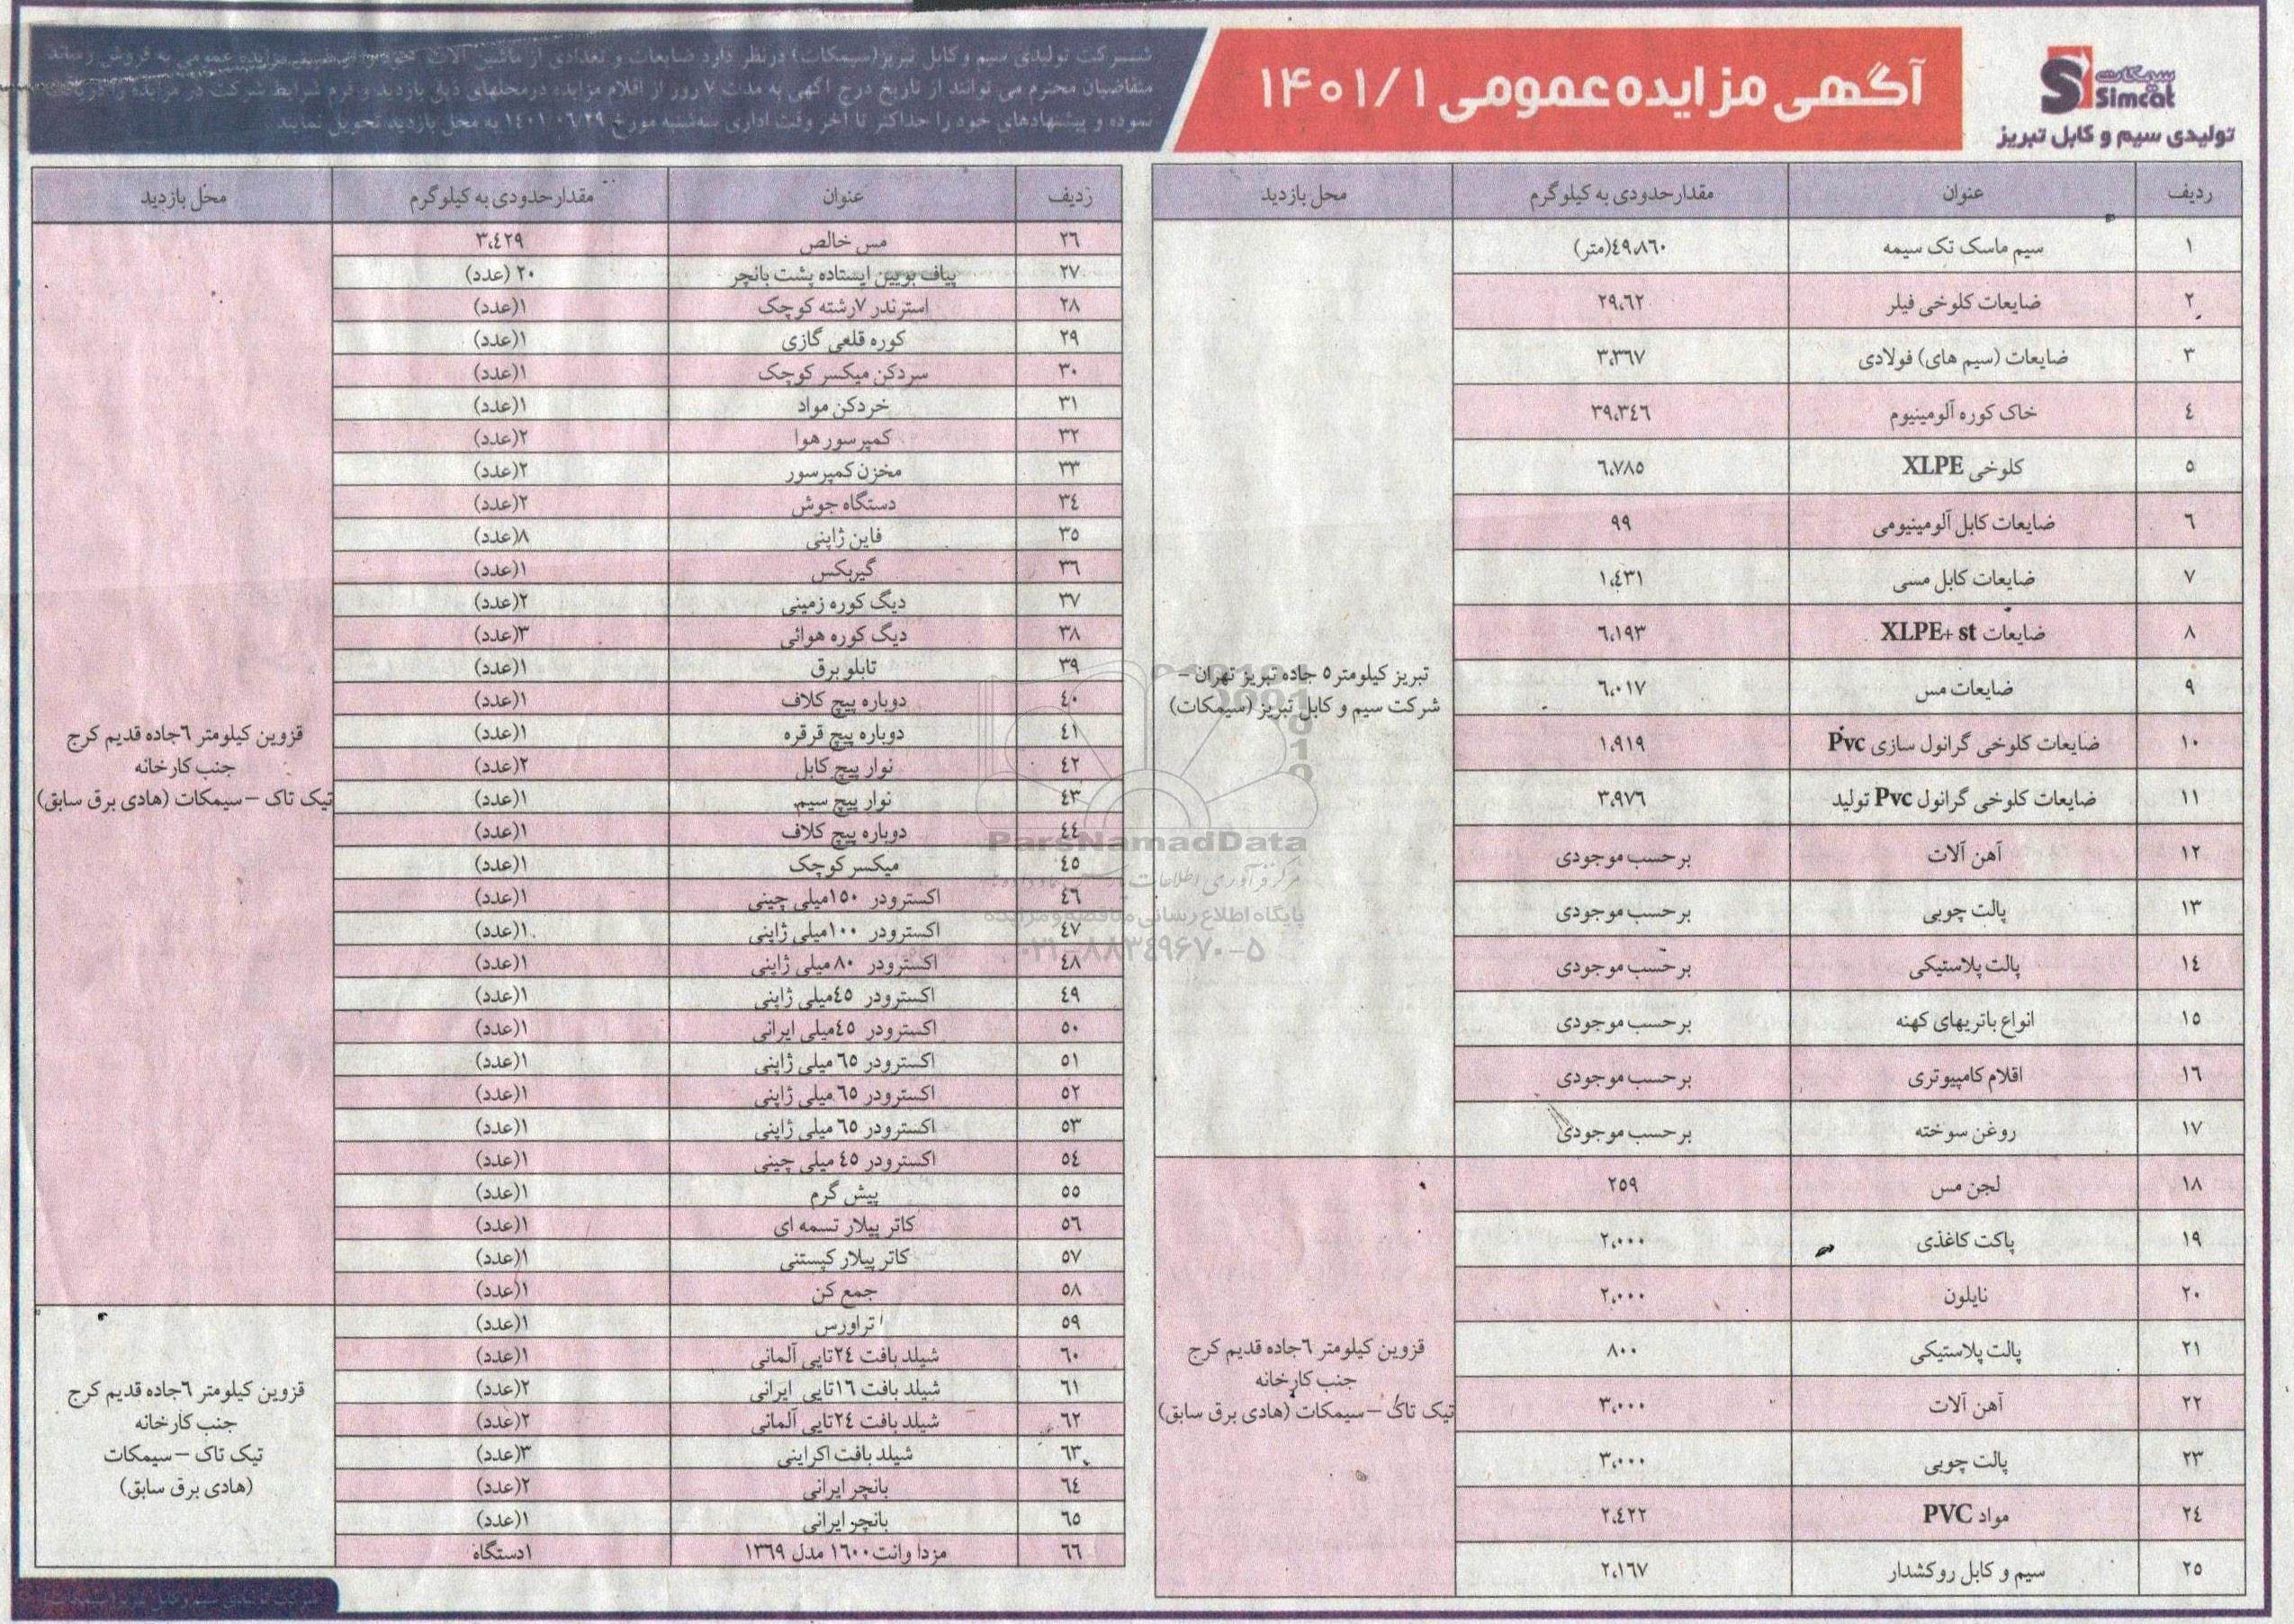 سیمکات
Simcat
تولیدی سیم و کابل تبریز
آگهی مزایده عمومی ۱۴۰۱/۱
شرکت تولیدی سیم و کابل تبریز(سیمکات) درنظر دارد ضایعات و تعدادی از ماشین آلات خود را از طریق مزایده عمومی به فروش رساند
متقاضیان محترم می توانند از تاریخ درج آگهی به مدت ۷ روز از اقلام مزایده درمحلهای ذیل بازدید و فرم شرایط شرکت در مزایده را دریافت
نموده و پیشنهادهای خود را حداکثر تا آخر وقت اداری سه‌شنبه مورخ ۱٤۰۱/۰٦/۲۹ به محل بازدید تحویل نمایند
ردیف عنوان مقدارحدودی به کیلوگرم محل بازدید
۱ سیم ماسک تک سیمه ٤۹،۸٦۰(متر)
۲ ضایعات کلوخی فیلر ۲۹،٦۲
۳ ضایعات (سیم های) فولادی ۳،۳٦۷
٤ خاک کوره آلومینیوم ۳۹،۳٤٦
٥ کلوخی XLPE ٦،۷۸٥
٦ ضایعات کابل آلومینیومی ۹۹
۷ ضایعات کابل مسی ۱،٤۳۱
۸ ضایعات XLPE+ st ٦،۱۹۳
۹ ضایعات مس ٦،۰۱۷
۱۰ ضایعات کلوخی گرانول سازی Pvc ۱،۹۱۹
۱۱ ضایعات کلوخی گرانول Pvc تولید ۳،۹۷٦
۱۲ آهن آلات برحسب موجودی
۱۳ پالت چوبی برحسب موجودی
۱٤ پالت پلاستیکی برحسب موجودی
۱٥ انواع باتریهای کهنه برحسب موجودی
۱٦ اقلام کامپیوتری برحسب موجودی
۱۷ روغن سوخته برحسب موجودی
تبریز کیلومتر٥ جاده تبریز تهران –
شرکت سیم و کابل تبریز (سیمکات)
۱۸ لجن مس ۲٥۹
۱۹ پاکت کاغذی ۲،۰۰۰
۲۰ نایلون ۲،۰۰۰
۲۱ پالت پلاستیکی ۸۰۰
۲۲ آهن آلات ۳،۰۰۰
۲۳ پالت چوبی ۳،۰۰۰
۲٤ مواد PVC ۲،٤۲۲
۲٥ سیم و کابل روکشدار ۲،۱٦۷
قزوین کیلومتر ٦جاده قدیم کرج
جنب کارخانه
تیک تاک –سیمکات (هادی برق سابق)
ردیف عنوان مقدارحدودی به کیلوگرم محل بازدید
۲٦ مس خالص ۳،٤۲۹
۲۷ پیاف بوبین ایستاده پشت بانچر ۲۰ (عدد)
۲۸ استرندر ۷رشته کوچک ۱(عدد)
۲۹ کوره قلعی گازی ۱(عدد)
۳۰ سردکن میکسر کوچک ۱(عدد)
۳۱ خردکن مواد ۱(عدد)
۳۲ کمپرسور هوا ۲(عدد)
۳۳ مخزن کمپرسور ۲(عدد)
۳٤ دستگاه جوش ۲(عدد)
۳٥ فاین ژاپنی ۸(عدد)
۳٦ گیربکس ۱(عدد)
۳۷ دیگ کوره زمینی ۲(عدد)
۳۸ دیگ کوره هوائی ۳(عدد)
۳۹ تابلو برق ۱(عدد)
٤۰ دوباره پیچ کلاف ۱(عدد)
٤۱ دوباره پیچ قرقره ۱(عدد)
٤۲ نوار پیچ کابل ۲(عدد)
٤۳ نوار پیچ سیم ۱(عدد)
٤٤ دوباره پیچ کلاف ۱(عدد)
٤٥ میکسر کوچک ۱(عدد)
٤٦ اکسترودر ۱٥۰میلی چینی ۱(عدد)
٤۷ اکسترودر ۱۰۰میلی ژاپنی ۱(عدد)
٤۸ اکسترودر ۸۰میلی ژاپنی ۱(عدد)
٤۹ اکسترودر ٤٥میلی ژاپنی ۱(عدد)
٥۰ اکسترودر ٤٥میلی ایرانی ۱(عدد)
٥۱ اکسترودر ٦٥ میلی ژاپنی ۱(عدد)
٥۲ اکسترودر ٦٥ میلی ژاپنی ۱(عدد)
٥۳ اکسترودر ٦٥ میلی ژاپنی ۱(عدد)
٥٤ اکسترودر ٤٥ میلی چینی ۱(عدد)
٥٥ پیش گرم ۱(عدد)
٥٦ کاتر پیلار تسمه ای ۱(عدد)
٥۷ کاتر پیلار کپستنی ۱(عدد)
٥۸ جمع کن ۱(عدد)
قزوین کیلومتر ٦جاده قدیم کرج
جنب کارخانه
تیک تاک –سیمکات (هادی برق سابق)
٥۹ تراورس ۱(عدد)
٦۰ شیلد بافت ۲٤تایی آلمانی ۱(عدد)
٦۱ شیلد بافت ۱٦تایی ایرانی ۲(عدد)
٦۲ شیلد بافت ۲٤تایی آلمانی ۲(عدد)
٦۳ شیلد بافت اکراینی ۳(عدد)
٦٤ بانچر ایرانی ۲(عدد)
٦٥ بانچر ایرانی ۱(عدد)
٦٦ مزدا وانت ۱٦۰۰ مدل ۱۳٦۹ ۱دستگاه
قزوین کیلومتر ٦جاده قدیم کرج
جنب کارخانه
تیک تاک –سیمکات
(هادی برق سابق)
ParsNamadData
پایگاه اطلاع رسانی مناقصه و مزایده
۰۲۱-۸۸۳٤۹۶۷۰-۵